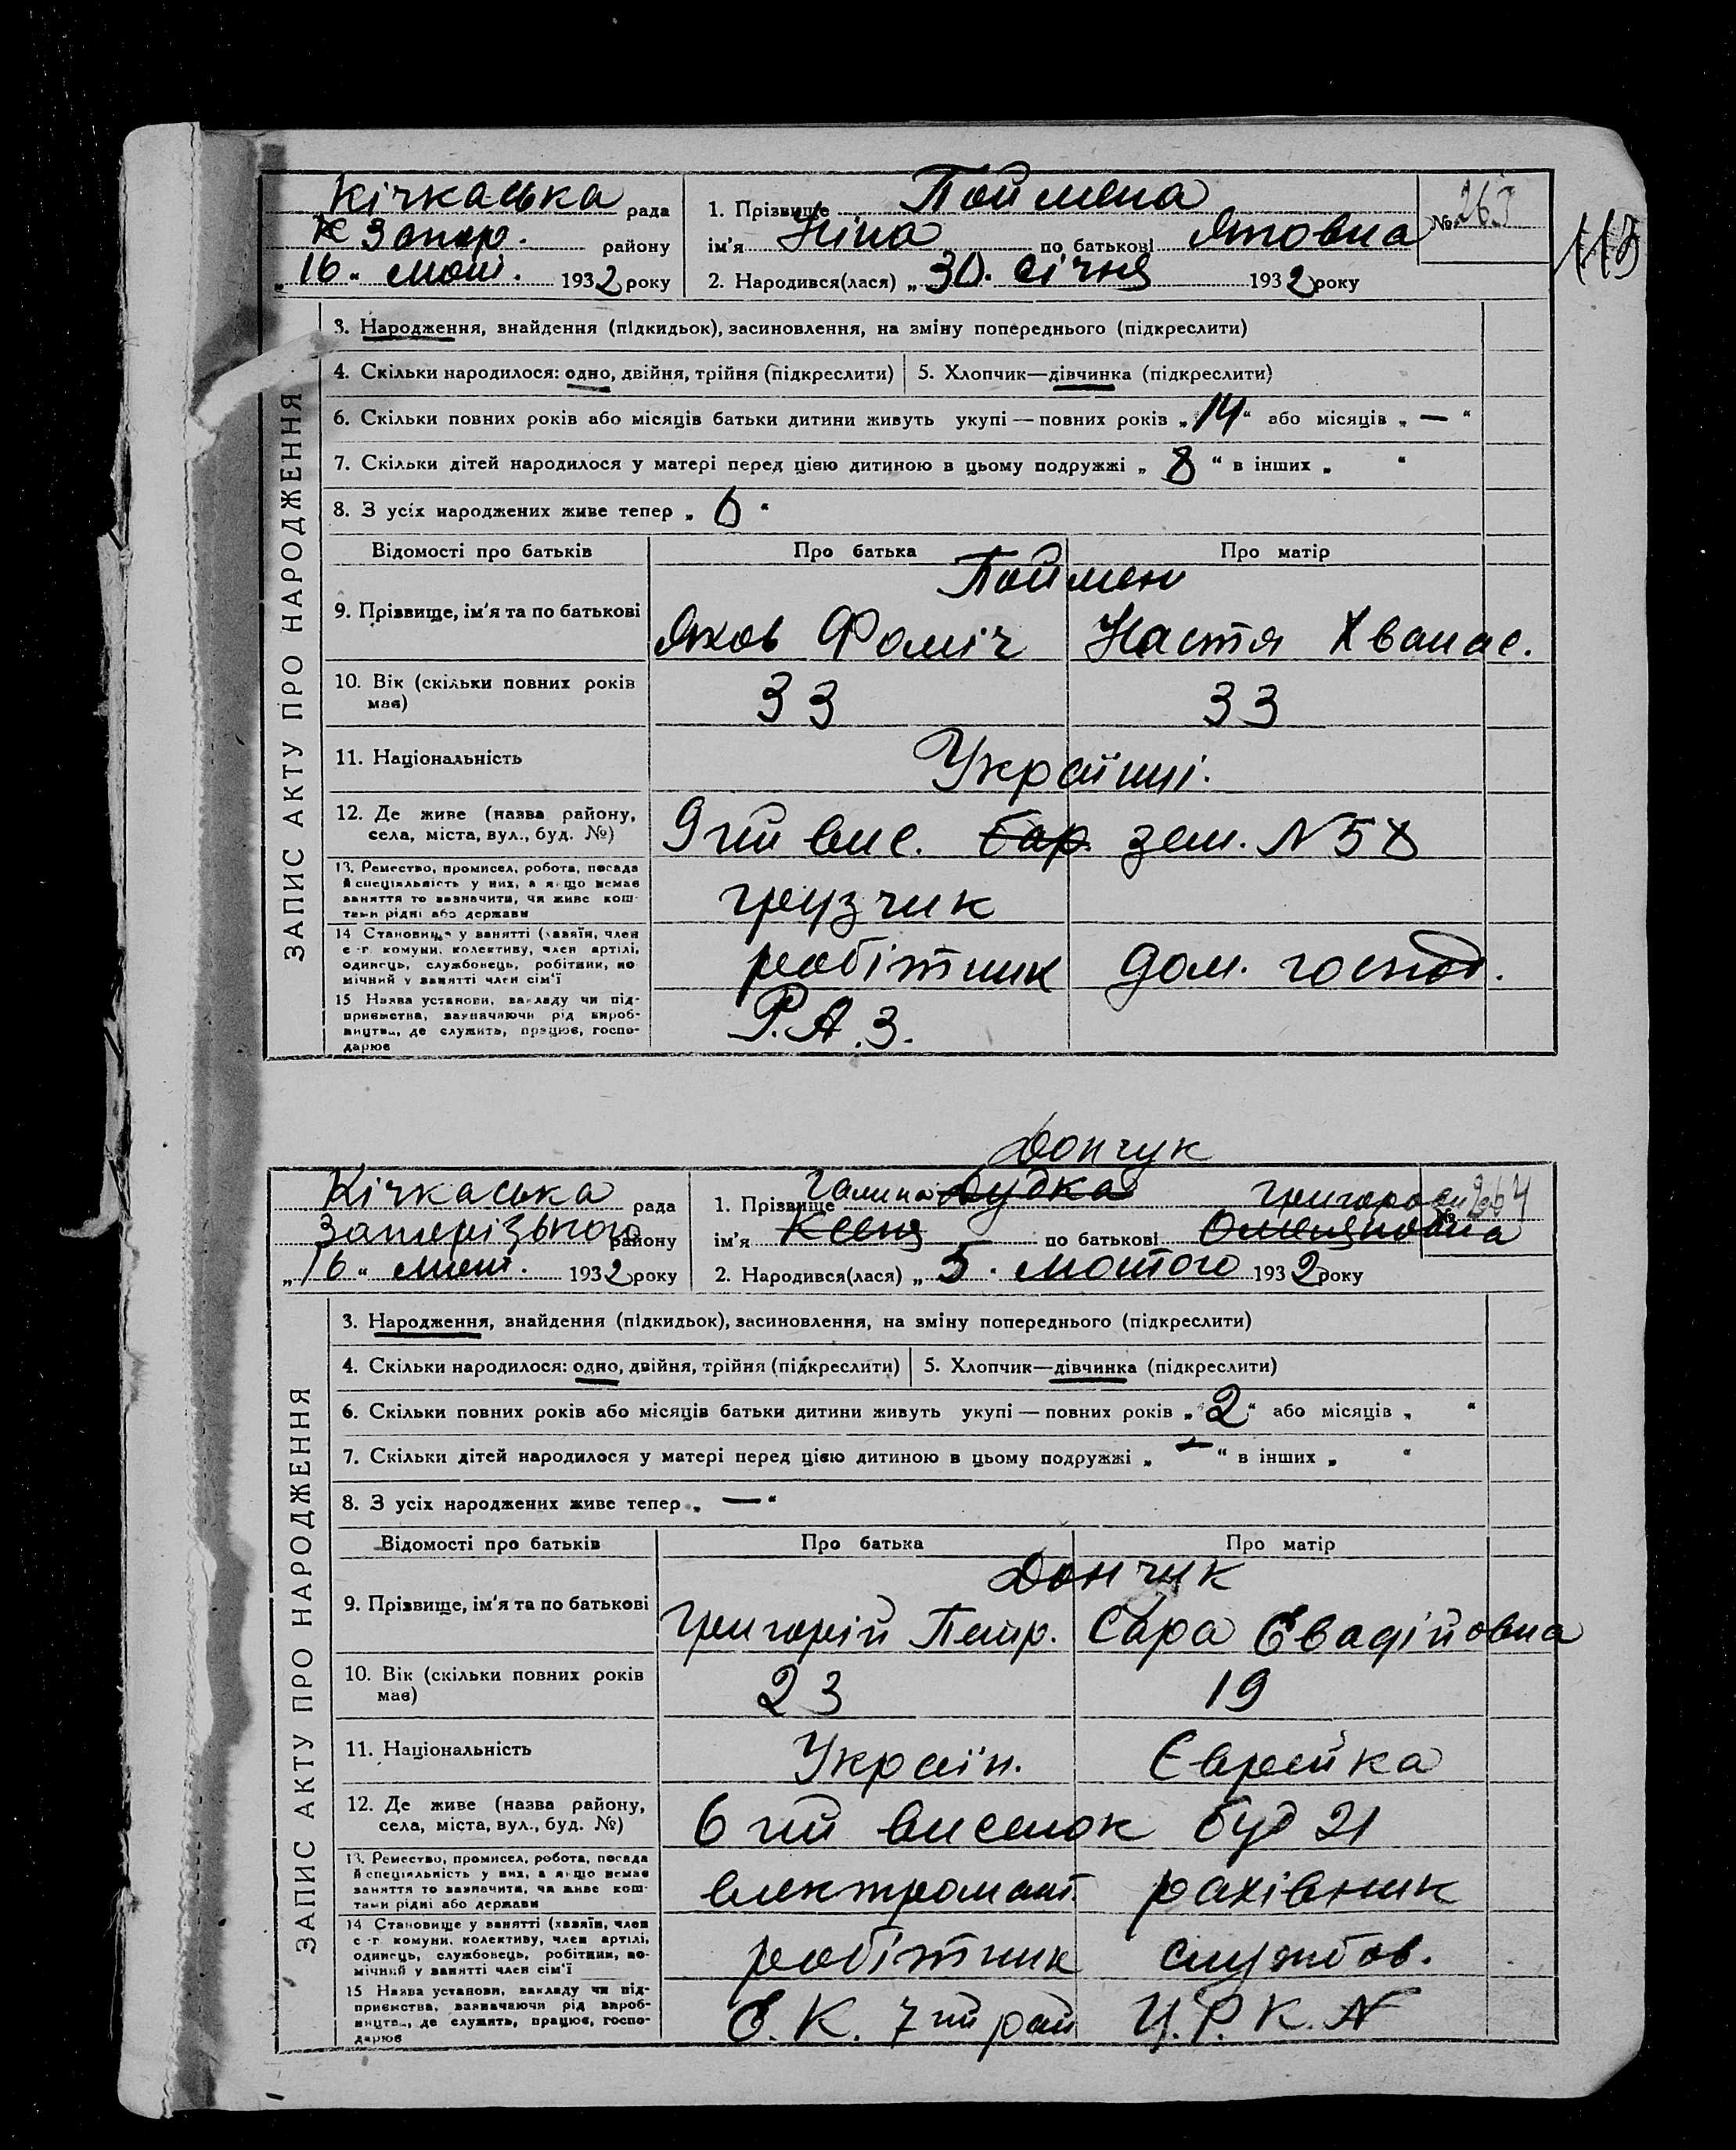 Кічкаська рада
К Запор. району
„16“ лют. 1932 року
1. Прізвище Поймена
ім'я Ніна по батькові Яковна
2. Народився(лася) „30. січня 1932 року
№ 263
113
ЗАПИС АКТУ ПРО НАРОДЖЕННЯ
3. Народження, знайдення (підкидьок), засиновлення, на зміну попереднього (підкреслити)
4. Скільки народилося: одно, двійня, трійня (підкреслити) 5. Хлопчик—дівчинка (підкреслити)
6. Скільки повних років або місяців батьки дитини живуть укупі — повних років „14“ або місяців „—“
7. Скільки дітей народилося у матері перед цією дитиною в цьому подружжі „8“ в інших „ “
8. З усіх народжених живе тепер „6“
Відомості про батьків Про батька Про матір
Поймен
9. Прізвище, ім'я та по батькові Яков Фоміч Настя Хванас.
10. Вік (скільки повних років має) 33 33
11. Національність Українці.
12. Де живе (назва району, села, міста, вул., буд. №) 9 тий вис. бар. зем. N 58
13. Ремество, промисел, робота, посада й спеціяльність у них, а якщо немає заняття то зазначити, чи живе коштами рідні або держави грузчик
14 Становище у занятті (хазяїн, член с.-г. комуни, колективу, член артілі, одинець, службовець, робітник, помічний у занятті член сім'ї робітник дом. господ.
15 Назва установи, закладу чи підприємства, зазначаючи рід виробництва, де служить, працює, господарює Р.А.З.
Дончук
Кічкаська рада
Запорізького району
„16“ лют. 1932 року
Галина Григоров
1. Прізвище Дудка
ім'я Ксеня по батькові Омеляновна
2. Народився(лася) „5. лютого 1932 року
№ 264
ЗАПИС АКТУ ПРО НАРОДЖЕННЯ
3. Народження, знайдення (підкидьок), засиновлення, на зміну попереднього (підкреслити)
4. Скільки народилося: одно, двійня, трійня (підкреслити) 5. Хлопчик—дівчинка (підкреслити)
6. Скільки повних років або місяців батьки дитини живуть укупі — повних років „2“ або місяців „ “
7. Скільки дітей народилося у матері перед цією дитиною в цьому подружжі „—“ в інших „ “
8. З усіх народжених живе тепер „—“
Відомості про батьків Про батька Про матір
Дончук
9. Прізвище, ім'я та по батькові Григорій Петр. Сара Евадійовна
10. Вік (скільки повних років має) 23 19
11. Національність Україн. Єврейка
12. Де живе (назва району, села, міста, вул., буд. №) 6 тий виселок буд 21
13. Ремество, промисел, робота, посада й спеціяльність у них, а якщо немає заняття то зазначити, чи живе коштами рідні або держави електромонт. рахівник
14 Становище у занятті (хазяїн, член с.-г. комуни, колективу, член артілі, одинець, службовець, робітник, помічний у занятті член сім'ї робітник службов.
15 Назва установи, закладу чи підприємства, зазначаючи рід виробництва, де служить, працює, господарює Е.К. 7 ий рай Ц.Р.К. N